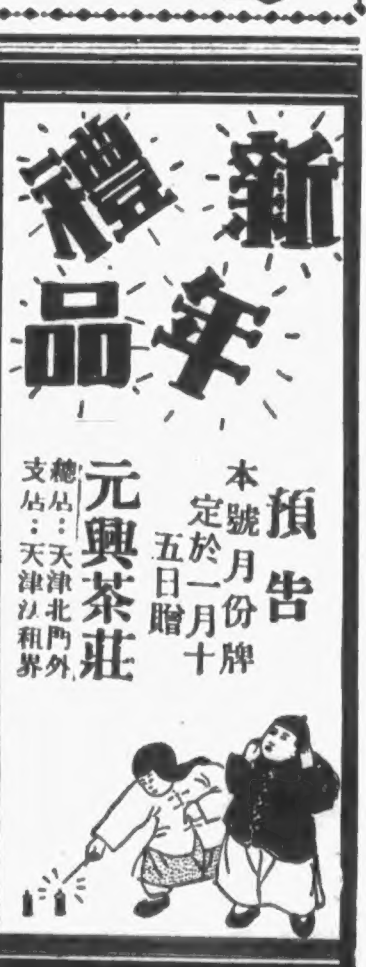 新年
禮品
預告
本號月份牌
定於一月十
五日贈
元興茶莊
總店：天津北門外
支店：天津法租界